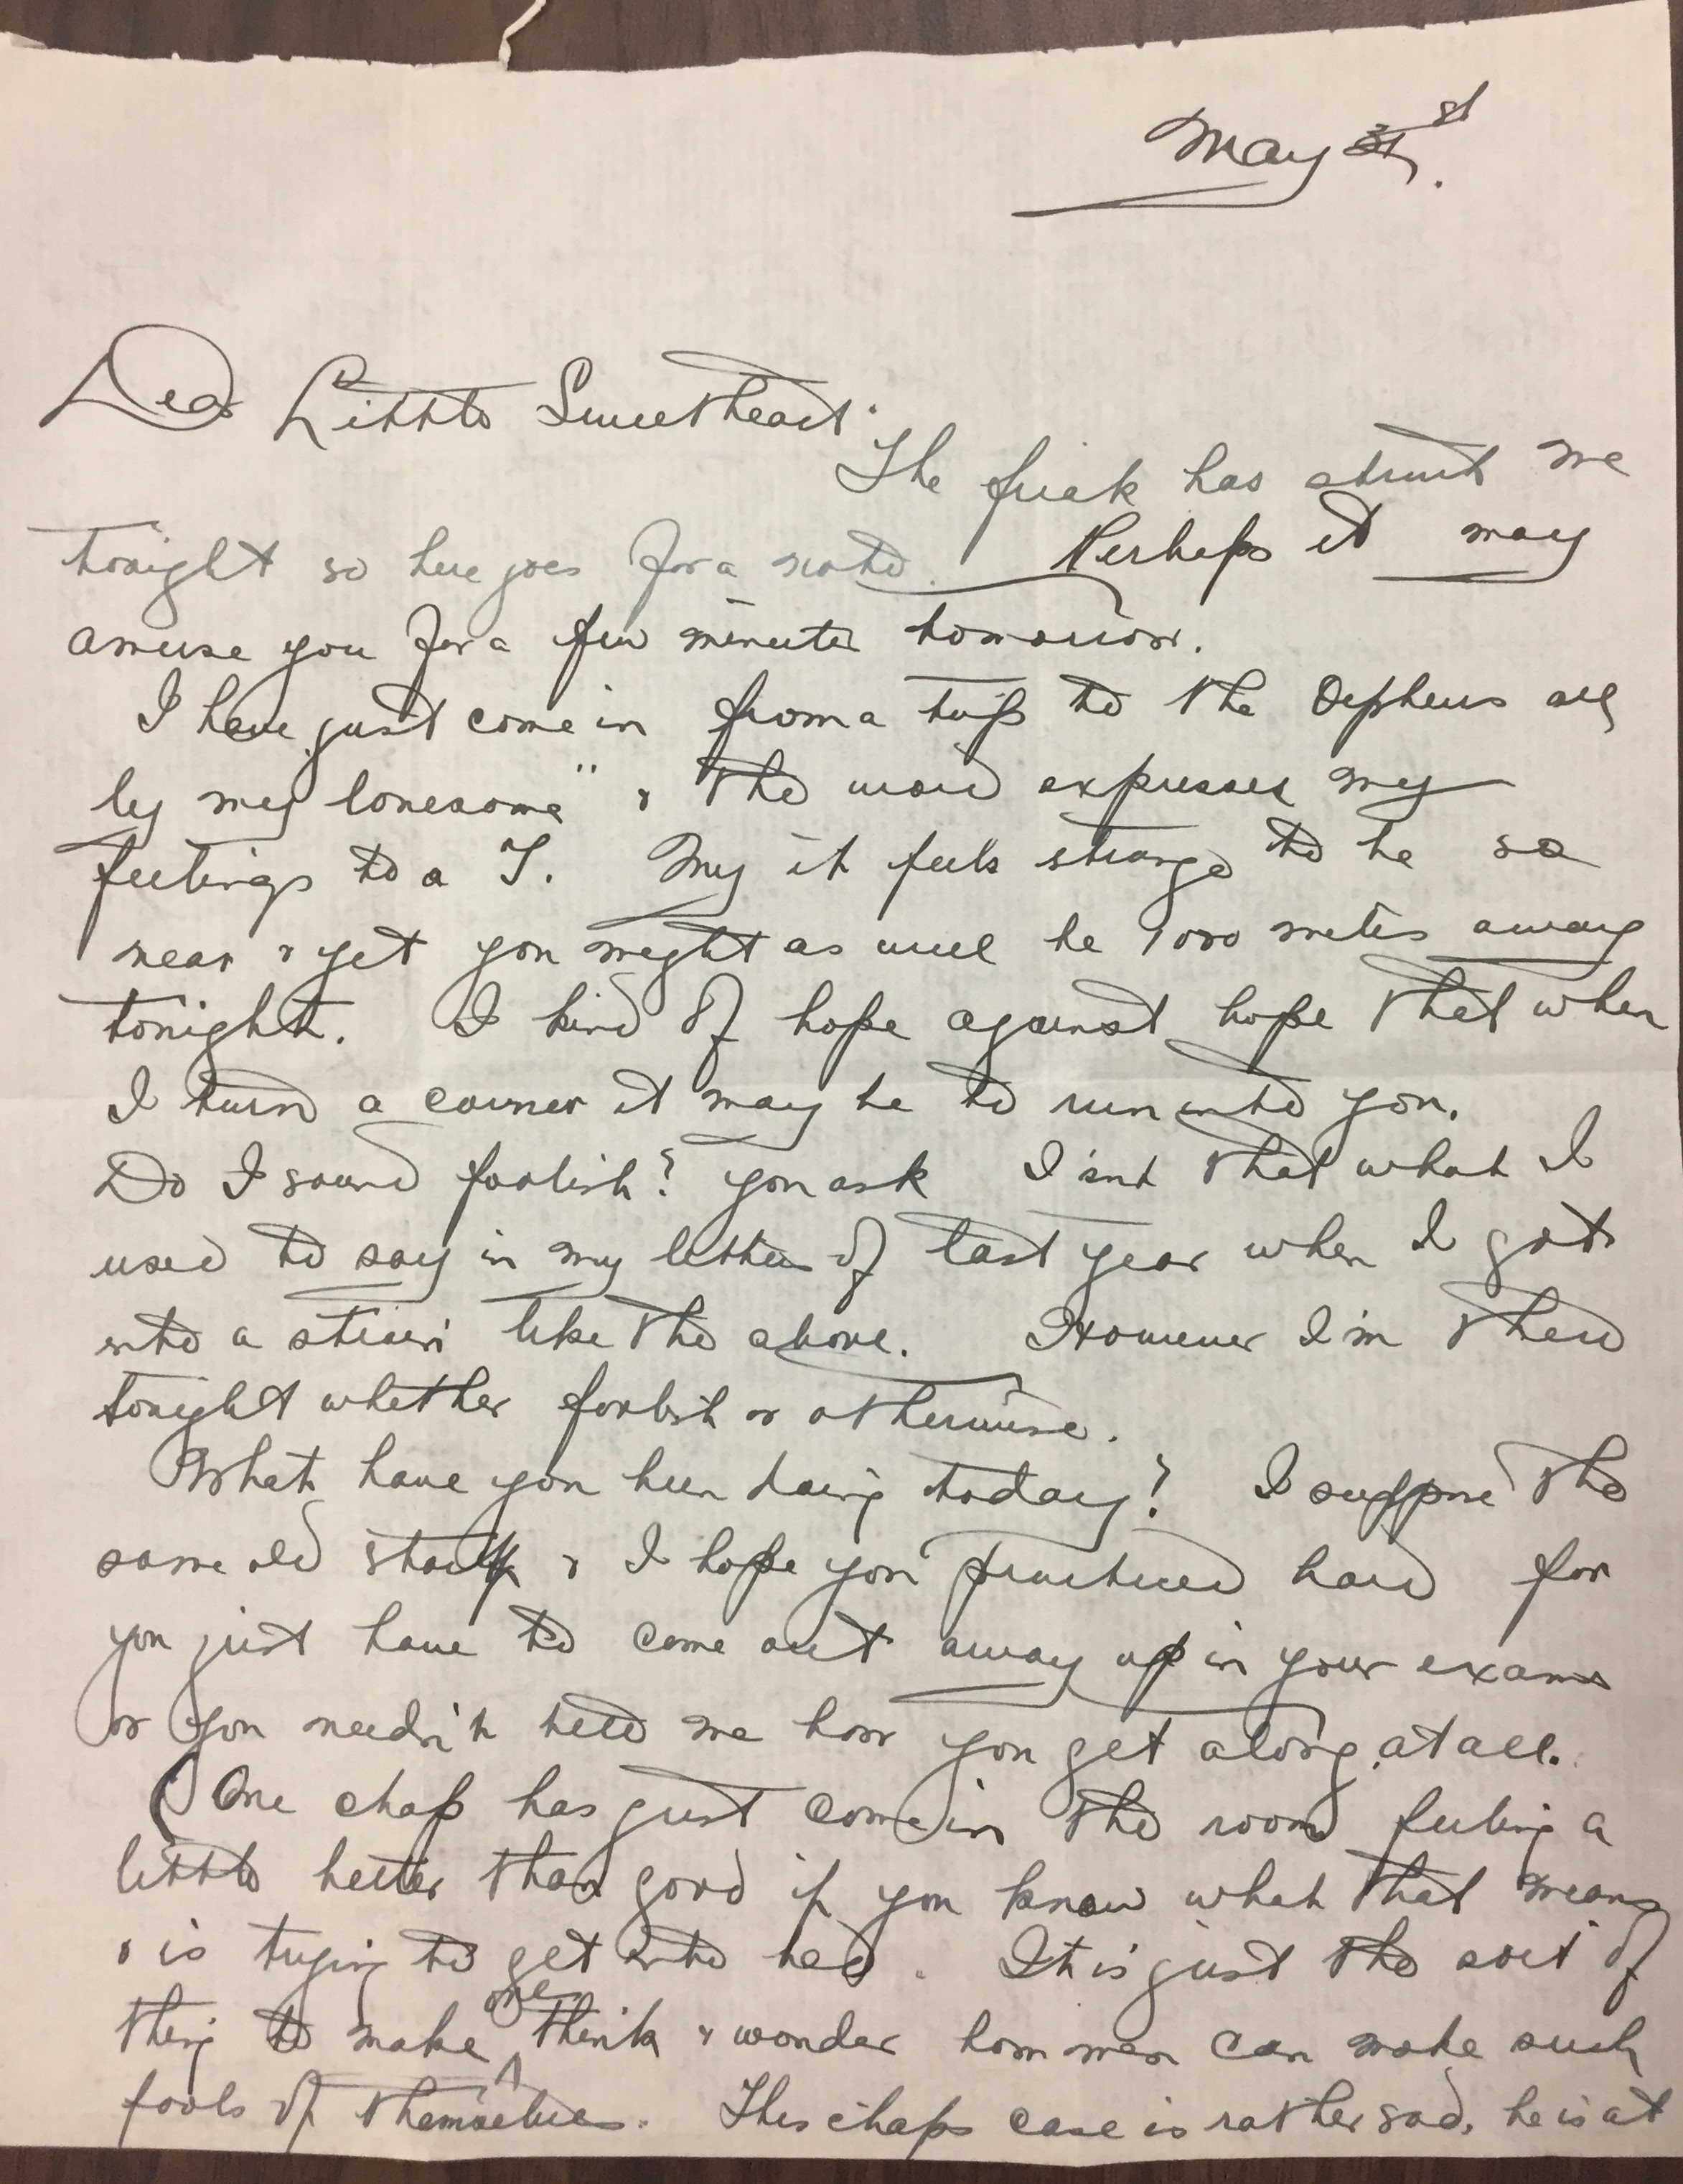 May 31st.
Dear Little Sweetheart:
The freak has struck me
tonight so here goes for a note. Perhaps it may
amuse you for a few minutes tomorrow.
I have just come in from a trip to the Orpheus all
by my "lonesome" & the word expresses my
feelings to a T. My it feels strange to be so
near & yet you might as well be 1000 miles away
tonight. I kind of hope against hope that when
I turn a corner it may be to run into you.
Do I sound foolish? you ask Isnt that what I
used to say in my letters of last year when I got
into a strain like the above. However I'm there
tonight whether foolish or otherwise.
What have you been doing today? I suppose the
same old story & I hope you practiced hard for
you just have to come out away up in your exams
or you needn't tell me how you get along at all.
(One chap has just come in the room feeling a
little better than good if you know what that means
& is trying to get into bed. It is just the sort of
thing to make one think & wonder how men can make such
fools of themselves. This chaps case is rather sad, he is at